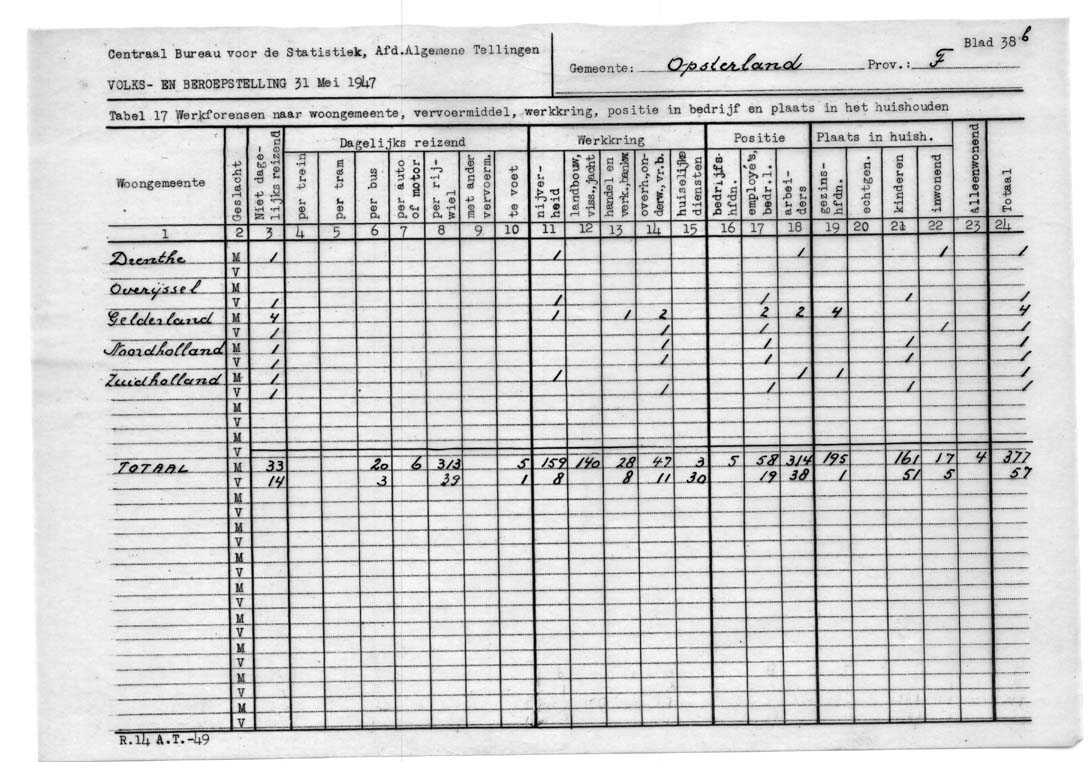 Centraal Bureau voor de Statistiek, Afd.Algemene Tellingen
VOLKS- EN BEROEPSTELLING 31 Mei 1947
Gemeente: Opsterland Prov.: F Blad 38 b
Tabel 17 Werkforensen naar woongemeente, vervoermiddel, werkkring, positie in bedrijf en plaats in het huishouden
Woongemeente | Geslacht | Niet dage-lijks reizend | Dagelijks reizend | Werkkring | Positie | Plaats in huish. | Alleenwonend | Totaal
per trein | per tram | per bus | per auto of motor | per rij-wiel | met ander vervoerm. | te voet | nijver-heid | landbouw, viss., jacht | handel en verk., bankw. | overh., on-derw., vr.b. | huiselijke diensten | bedrijfs-hfdn. | employé's, bedr.l. | arbei-ders | gezins-hfdn. | echtgen. | kinderen | inwonend
1 2 3 4 5 6 7 8 9 10 11 12 13 14 15 16 17 18 19 20 21 22 23 24
Drenthe M 1 1 1 1 1
V
Overijssel M
V 1 1 1 1 1
Gelderland M 4 1 1 2 2 2 4 4
V 1 1 1 1 1
Noordholland M 1 1 1 1 1
V 1 1 1 1 1
Zuidholland M 1 1 1 1 1
V 1 1 1 1 1
M
V
M
V
TOTAAL M 33 20 6 313 5 159 140 28 47 3 5 58 314 195 161 17 4 377
V 14 3 39 1 8 8 11 30 19 38 1 51 5 57
M
V
M
V
M
V
M
V
M
V
M
V
M
V
M
V
R.14 A.T.-49